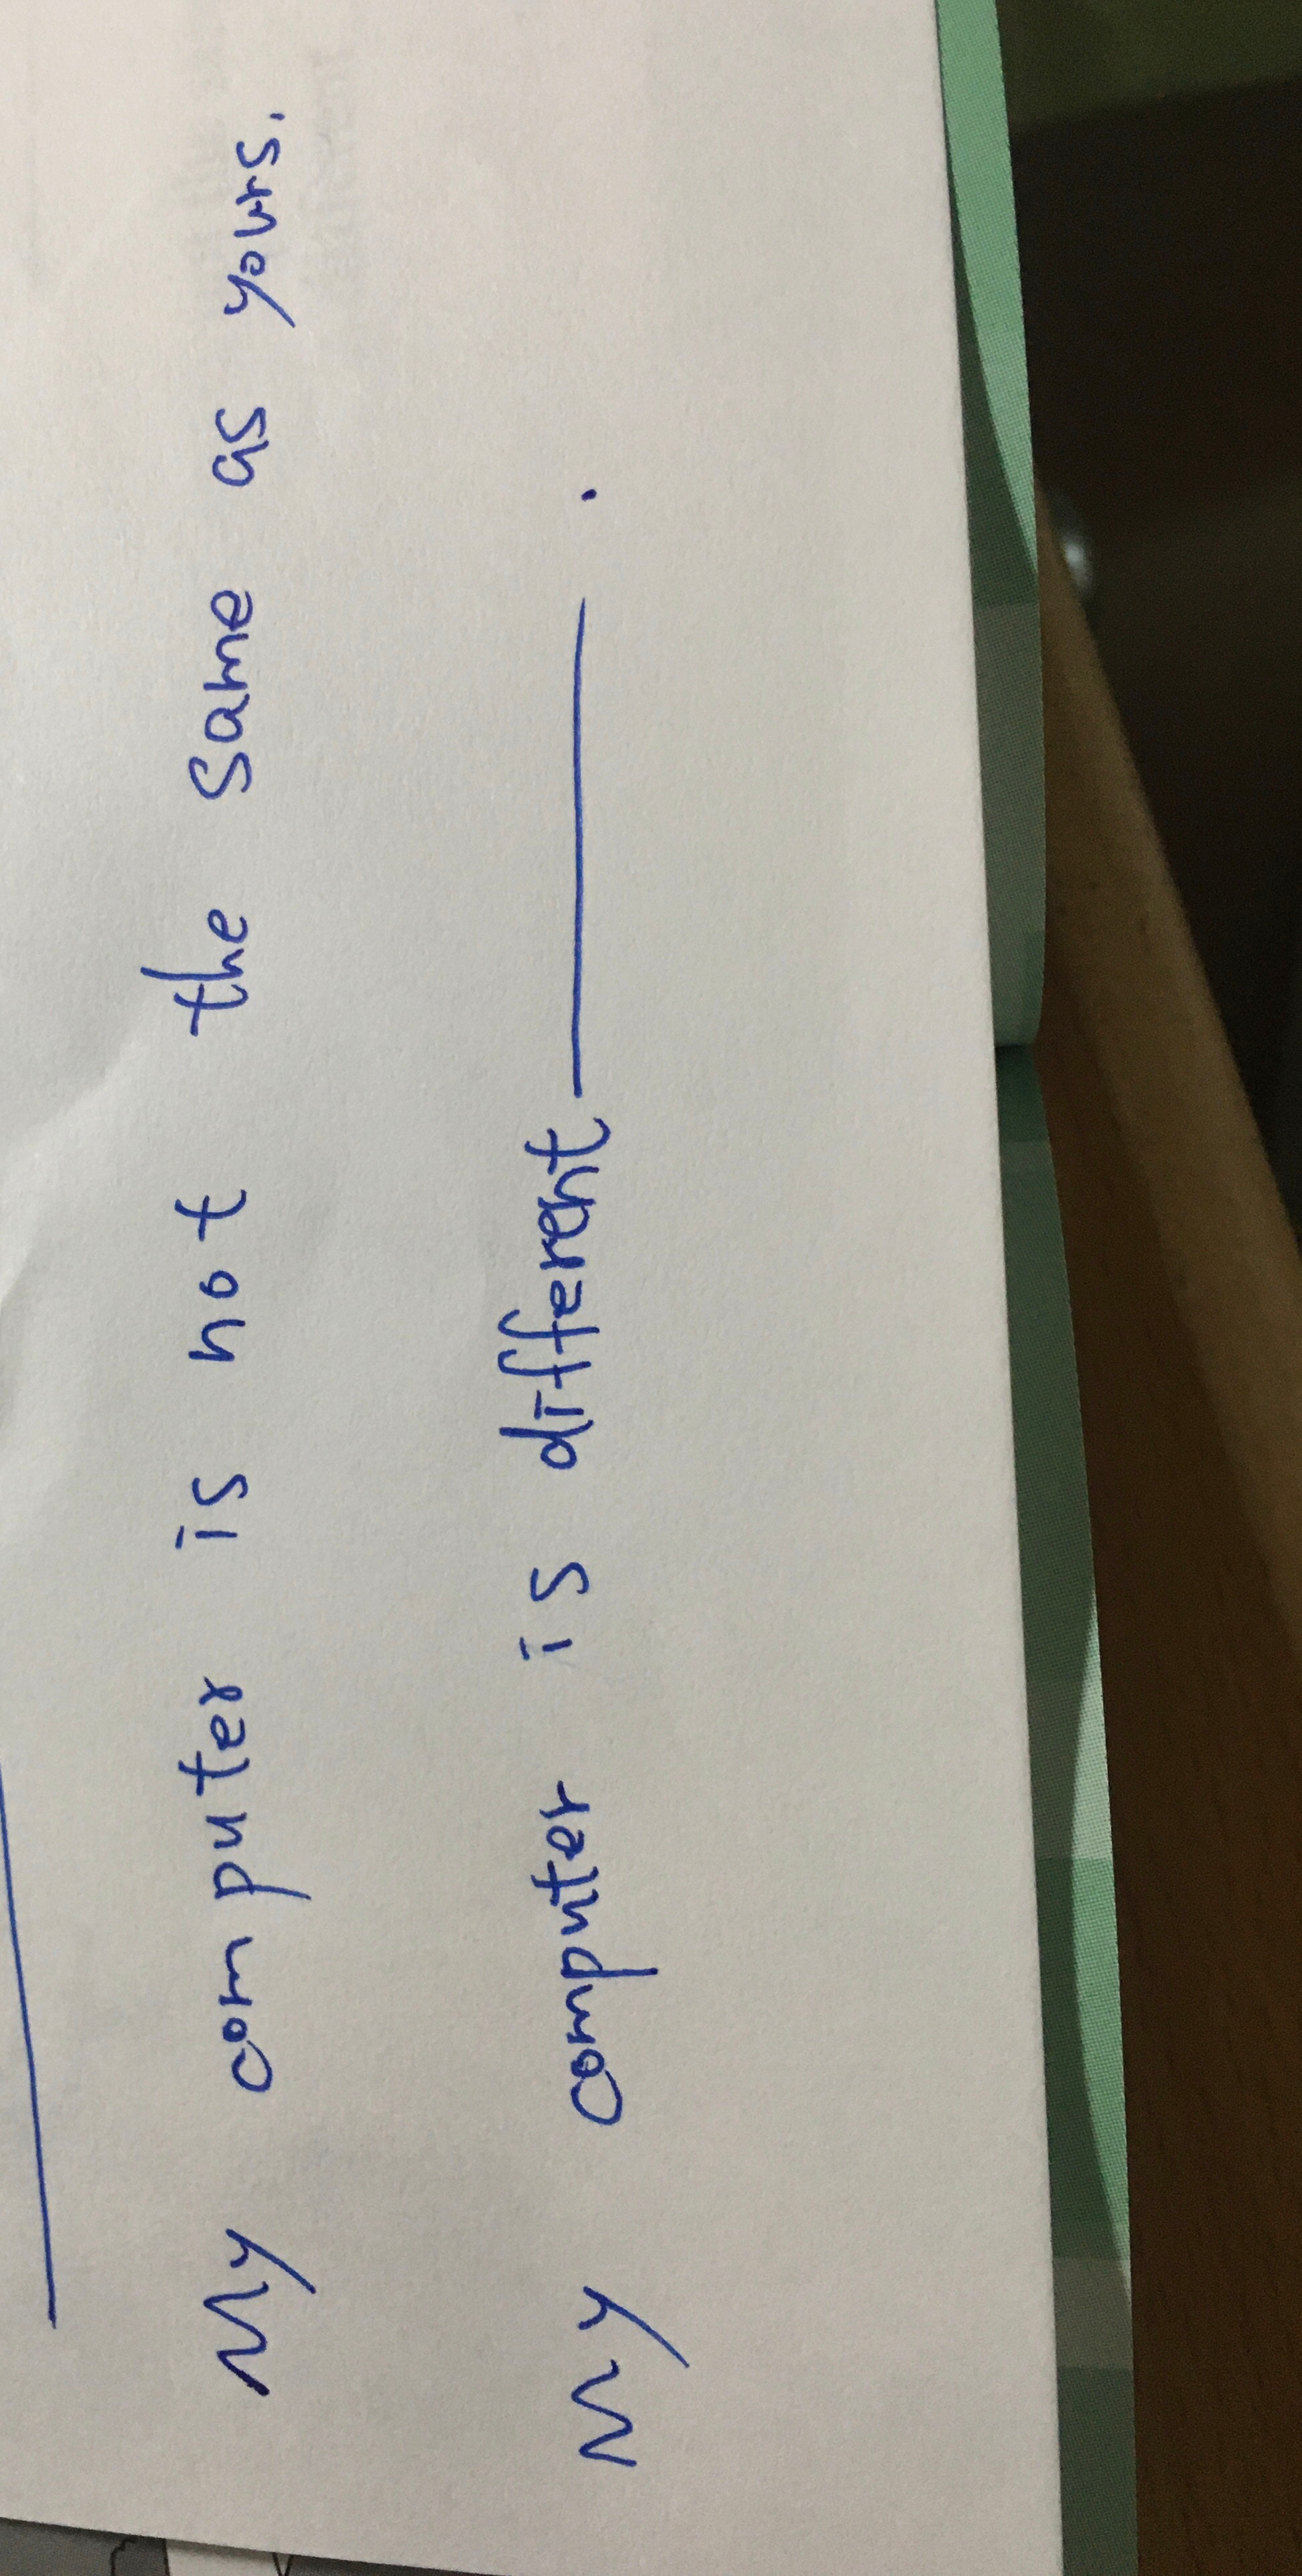 My computer is not the same as yours.
My computer is different ______ .